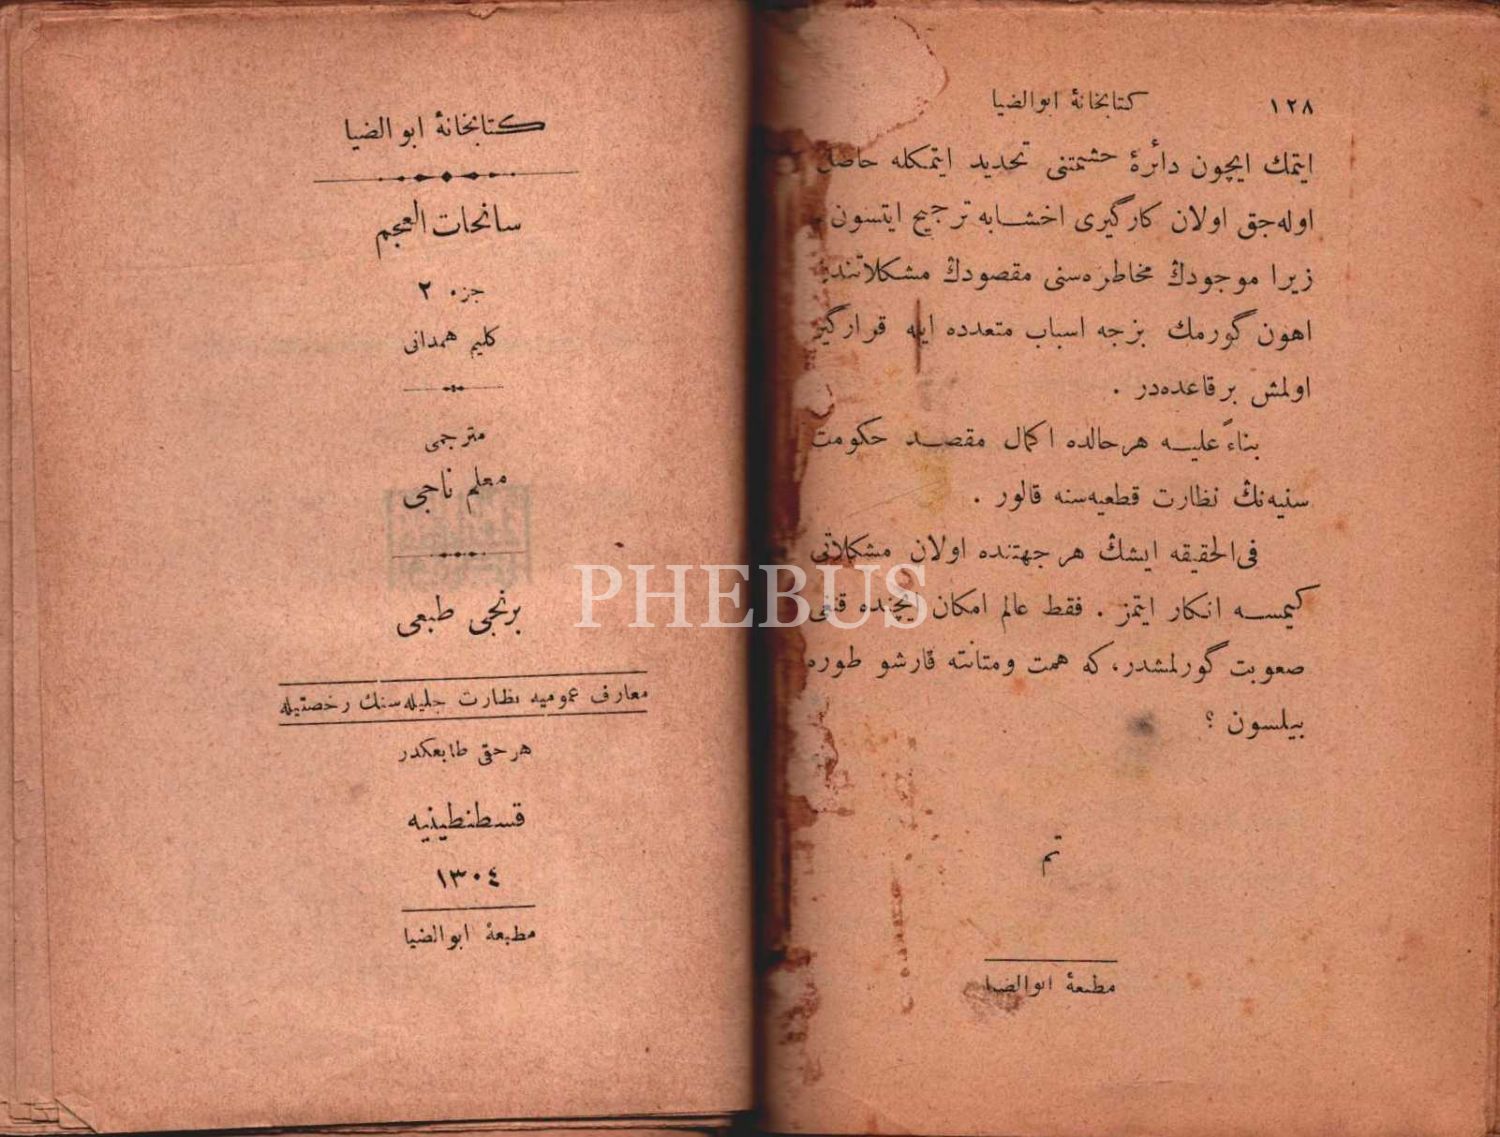 ١٢٨
كتابخانهٔ ابوالضيا
ايتمك ايچون دائرهٔ حشمتنى تحديد ايتمكله حاصل
اوله‌جق اولان كارگيرى اخشابه ترجيح ايتسون .
زيرا موجودك مخاطره‌سنى مقصودك مشكلاتندن
اهون گورمك بزجه اسباب متعدده ايله قرارگير
اولمش برقاعده‌در .
بناءً عليه هرحالده اكمال مقصد حكومت
سنيه‌نك نظارت قطعيه‌سنه قالور .
فى‌الحقيقه ايشك هر جهتنده اولان مشكلاتى
كيمسه انكار ايتمز . فقط عالم امكان ايچنده قنغى
صعوبت گورلمشدر، كه همت ومتانته قارشو طوره
بيلسون ؟
تم
مطبعهٔ ابوالضيا
كتابخانهٔ ابوالضيا
سانحات العجم
جزء ٢
كليم همدانى
مترجمى
معلم ناجى
برنجى طبعى
معارف عموميه نظارت جليله‌سنك رخصتيله
هر حقى طابعكدر
قسطنطينيه
١٣٠٤
مطبعهٔ ابوالضيا
PHEBUS